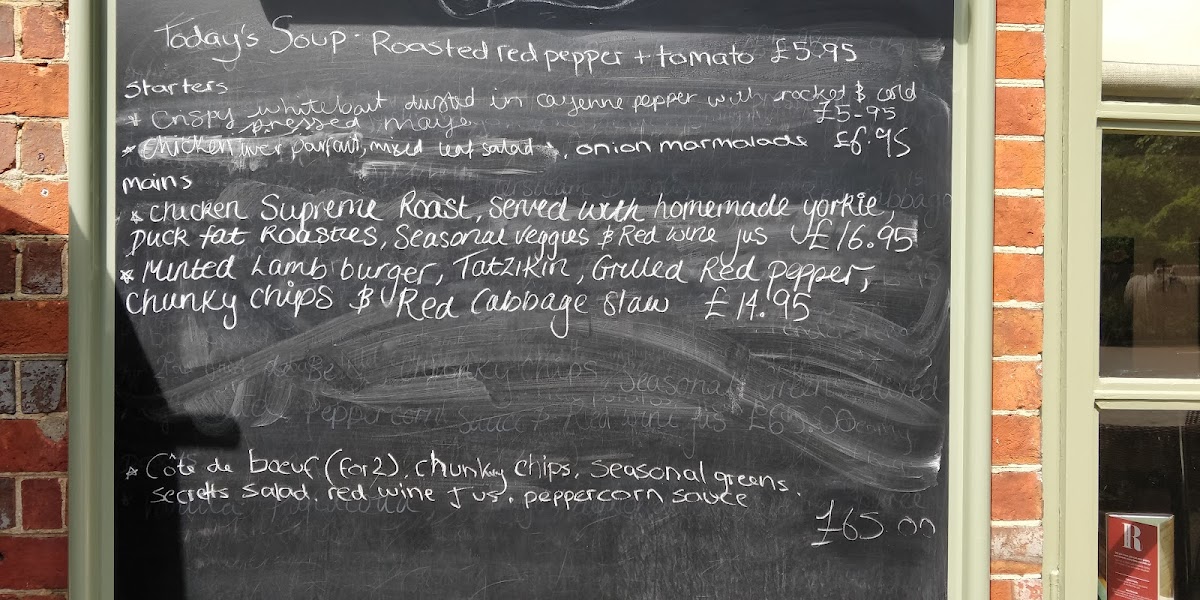 Today's Soup - Roasted red pepper + tomato £5.95
Starters
* Crispy whitebait dusted in cayenne pepper with rocket & cold
pressed mayo £5-95
* Chicken liver parfait, mixed leaf salad, onion marmalade £6.95
mains
* Chicken Supreme Roast, Served with homemade yorkie,
Duck fat Roasties, Seasonal veggies & Red wine jus £16.95
* Minted Lamb burger, Tatzikin, Grilled Red Pepper,
Chunky Chips & Red Cabbage Slaw £14.95
chunky chips Seasonal greens
Peppercorn Sauce & Red wine jus £65.00
* Côte de boeuf (for 2), chunky chips, seasonal greens,
secretts salad, red wine jus, peppercorn sauce
£65.00
R